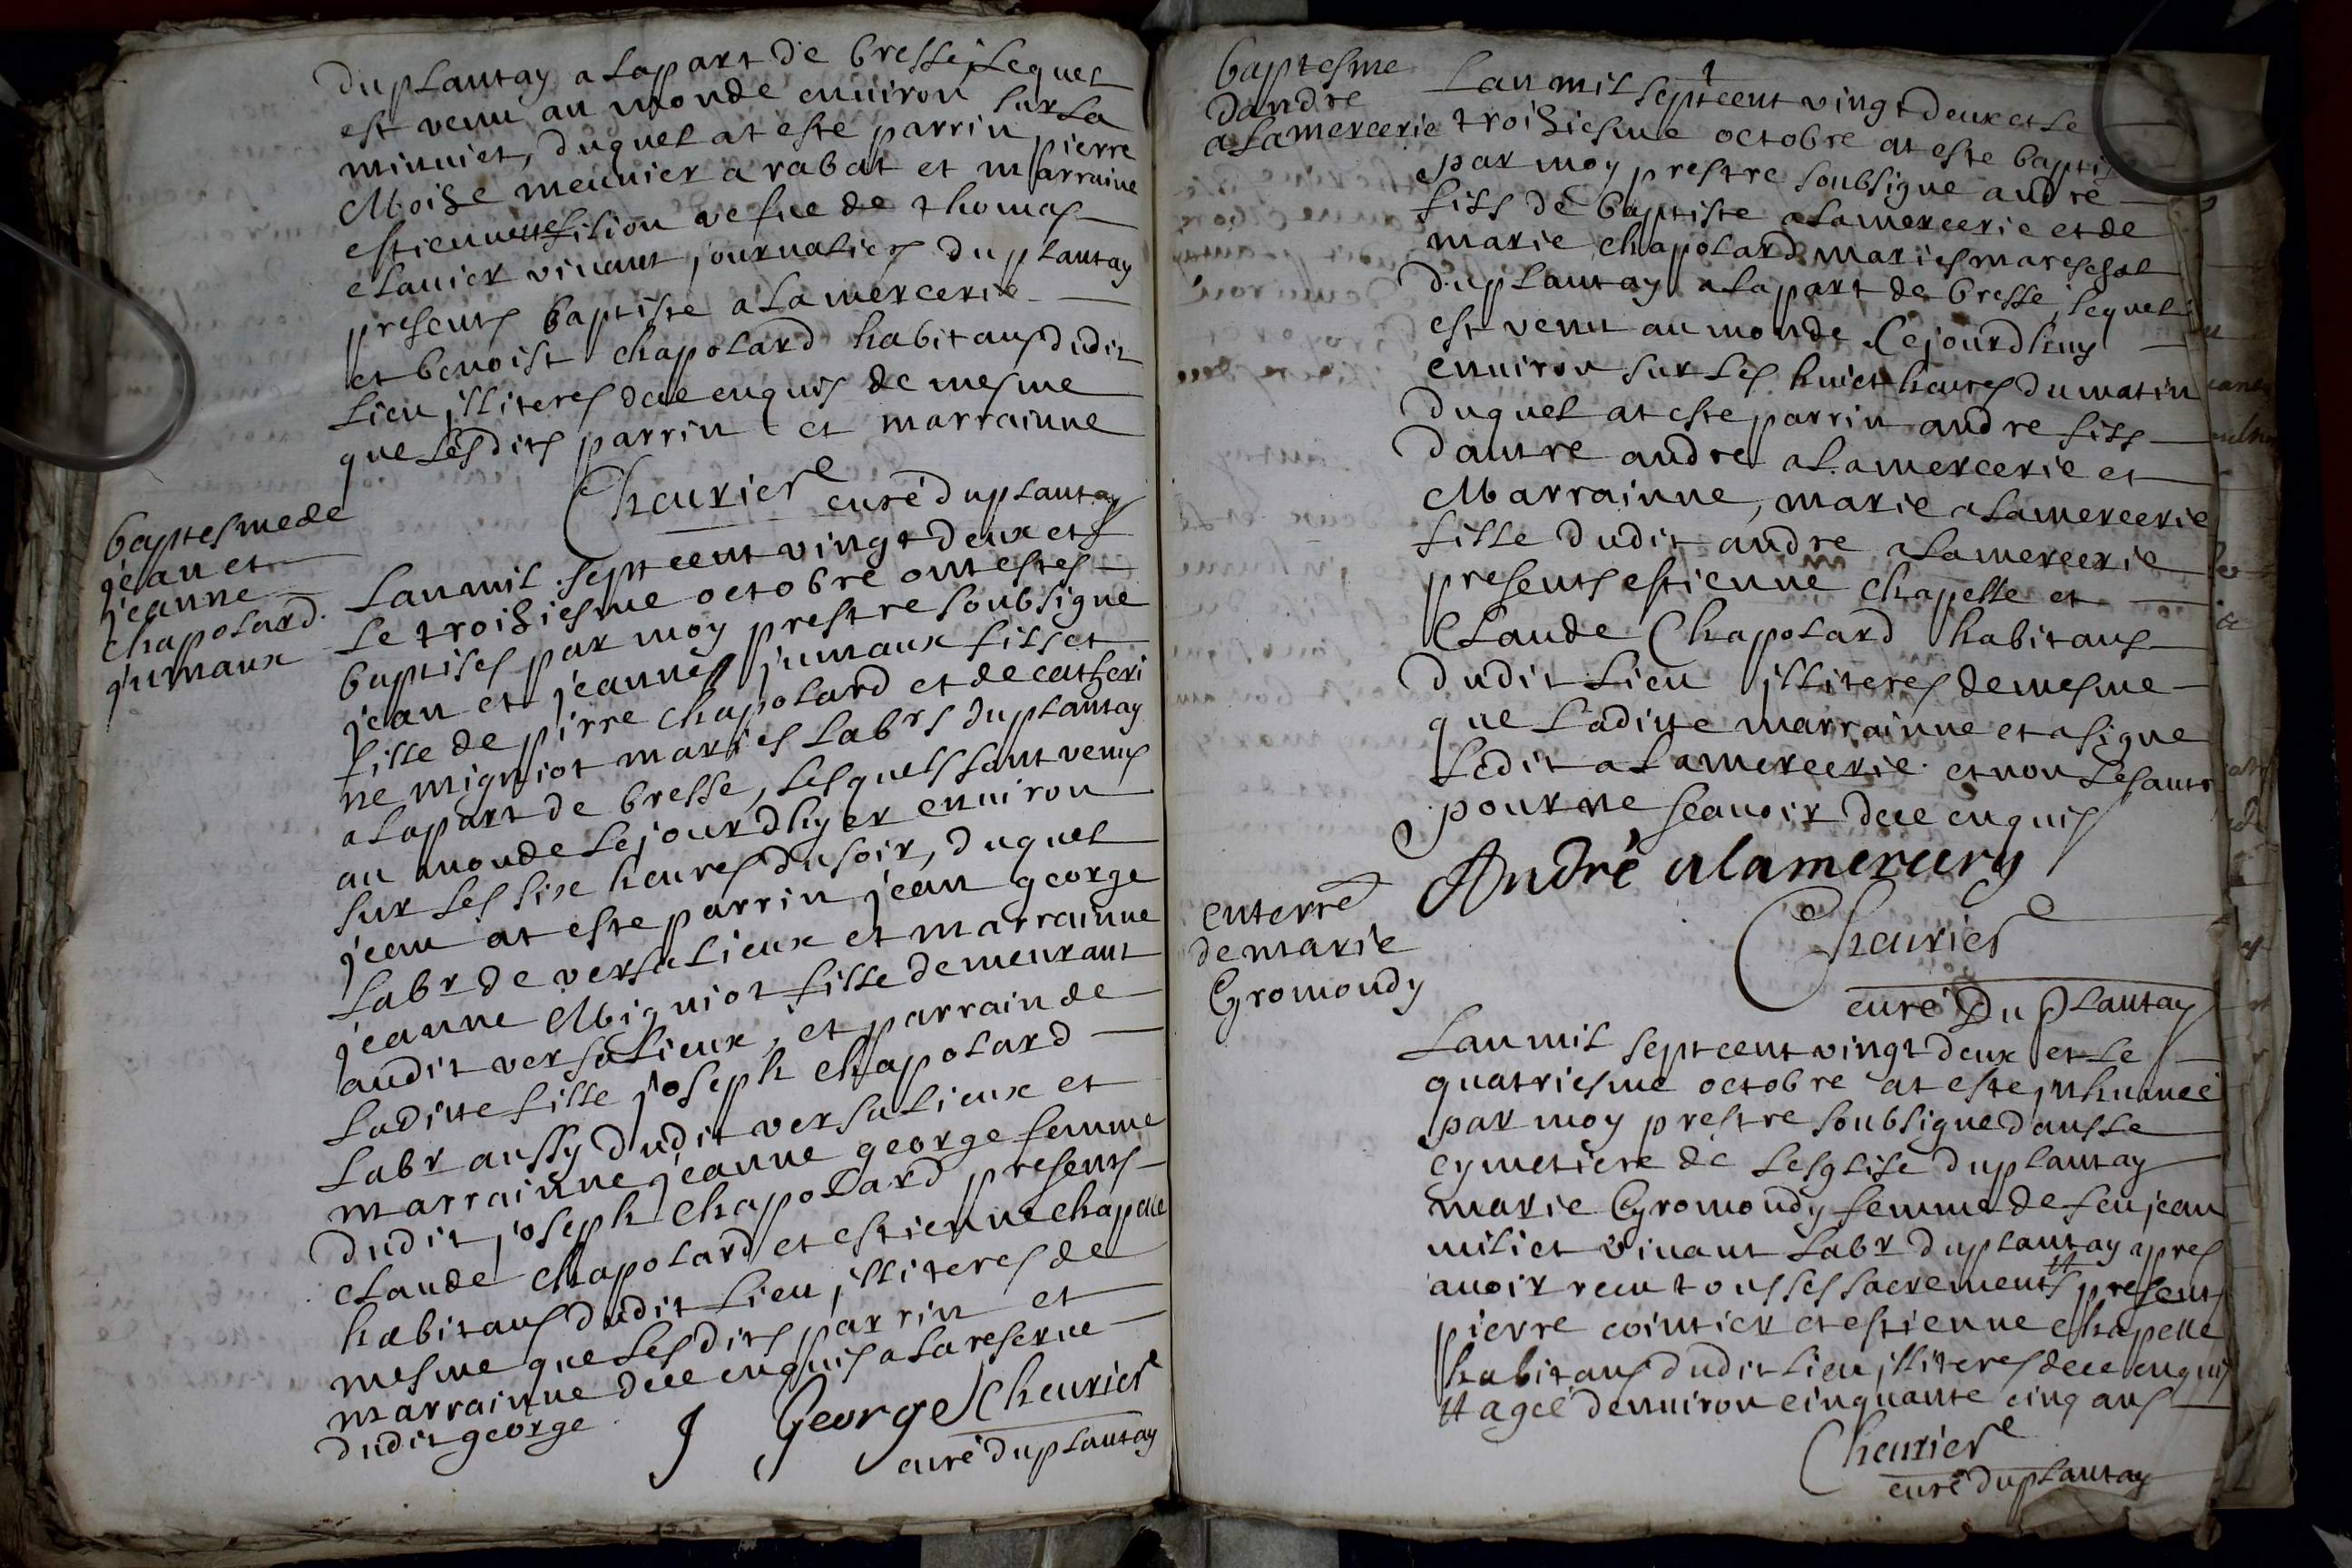 duplantay a lapart de bresse, lequel
est venu au monde enuiron sur la
minuiet, duquel at este parrin pierre
Moise meunier a rabat et marraine
estiennette filion vefue de thomas
clauier viuant journalier du plantay
presents baptiste alamercerie
et benoist chapolard habitans dudit
lieu jlliteres de ce enquis de mesme
que lesdits parrin et marrainne
Cheurier curé duplantay
baptesme de
jean et
jeanne
chapolard
jumaux
Lan mil sept cent vingt deux et
le troisiesme octobre ont estes
baptises par moy prestre soubsigne
jean et jeanne jumaux fils et
fille de pirre chapolard et de catheri
ne migniot maries labrs du plantay
a lapart de bresse, lesquels sont venus
au monde le jourdhyer enuiron
sur les six heures du soir, duquel
jean at este parrin jean george
labr de versalieux et marrainne
jeanne Migniot fille demeurant
audit versalieux, et parrain de
laditte fille joseph chapolard
labr aussy dudit versalieux et
marrainne jeanne george femme
dudit joseph chapolard presents
claude chapolard et estienne chapelle
habitans dudit lieu jlliteres de
mesme que lesdits parrin et
marrainne de ce enquis a la reserue
dudit george
J George Cheurier
curé duplantay
baptesme
dandre
alamercerie
Lan mil sept cent vingt deux et le
troisiesme octobre at este bapti
par moy prestre soubsigne andre
fils de baptiste alamercerie et de
marie chapolard maries mareschal
duplantay a lapart de bresse, lequel
est venu au monde Cejourdhuy
enuiron sur les huict heures du matin
duquel at este parrin andre fils
dautre andre alamercerie et
Marrainne, marie alamercerie
fille dudit andre alamercerie
presents estienne chapelle et
Claude Chapolard habitans
dudit lieu jlliteres de mesme
que laditte marrainne et a signe
ledit alamercerie et non les autr
pour ne scauoir de ce enquis
André alamercery
Cheurier
curé Du Plantay
enterre
de marie
Gromondy
Lan mil sept cent vingt deux et le
quatriesme octobre at este jnhumée
par moy prestre soubsigne dans le
cymetiere de lesglise duplantay
marie Gromondy femme de feu jean
miliet viuant labr duplantay apres
auoir receu tous ses sacrements tt presents
pierre cointier et estienne chapelle
habitans dudit lieu jlliteres de ce enquis
tt agée denuiron cinquante cinq ans
Cheurier
curé duplantay